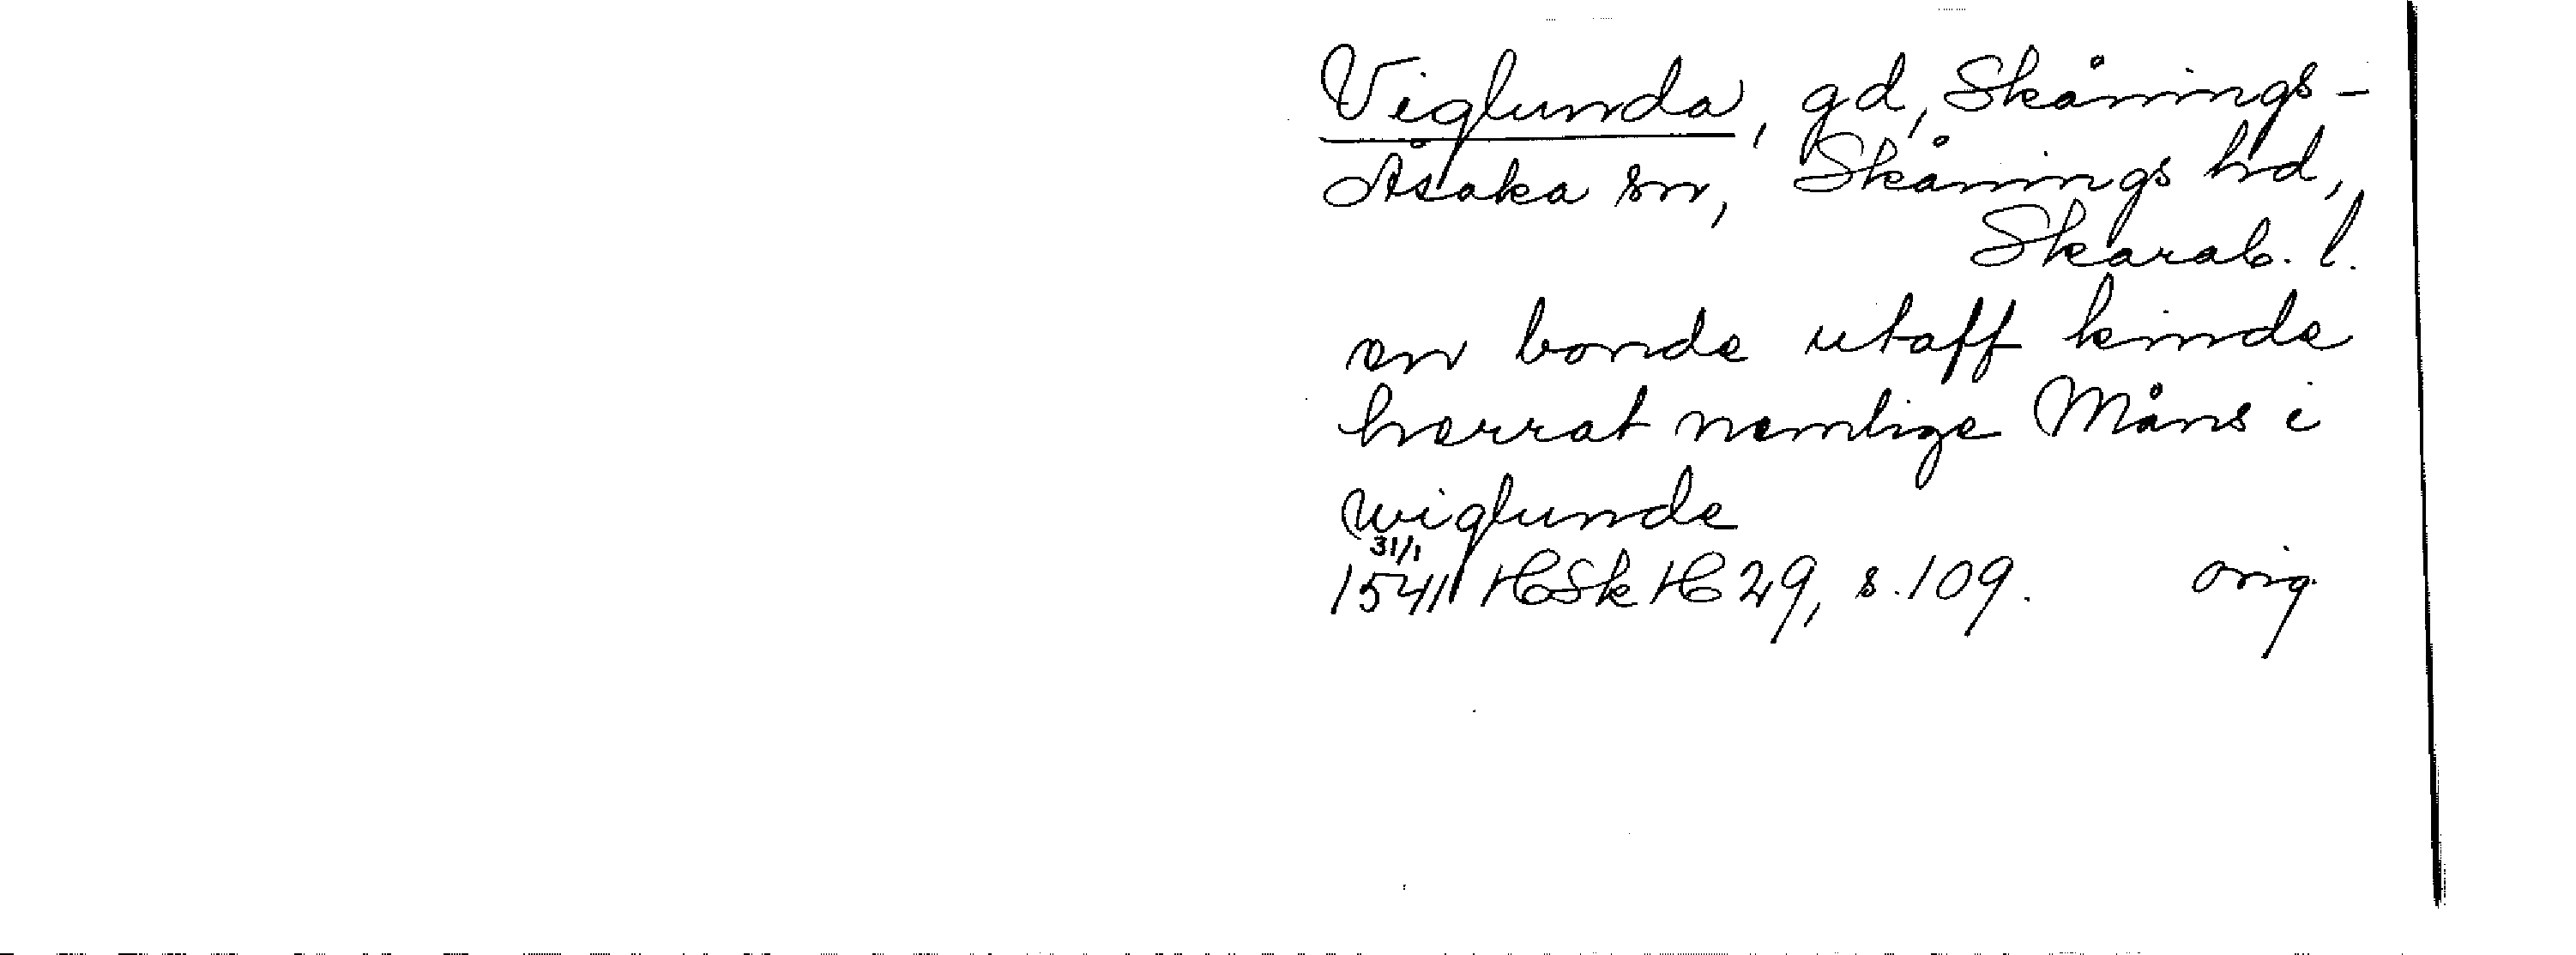 Viglunda, gd, Skånings-
Åsaka sn, Skånings hd,
Skarab. l.
en bonde utaff kinde
herrat nemlige Måns i
wiglunde
31/1
1541 HSkH 29, s. 109. orig